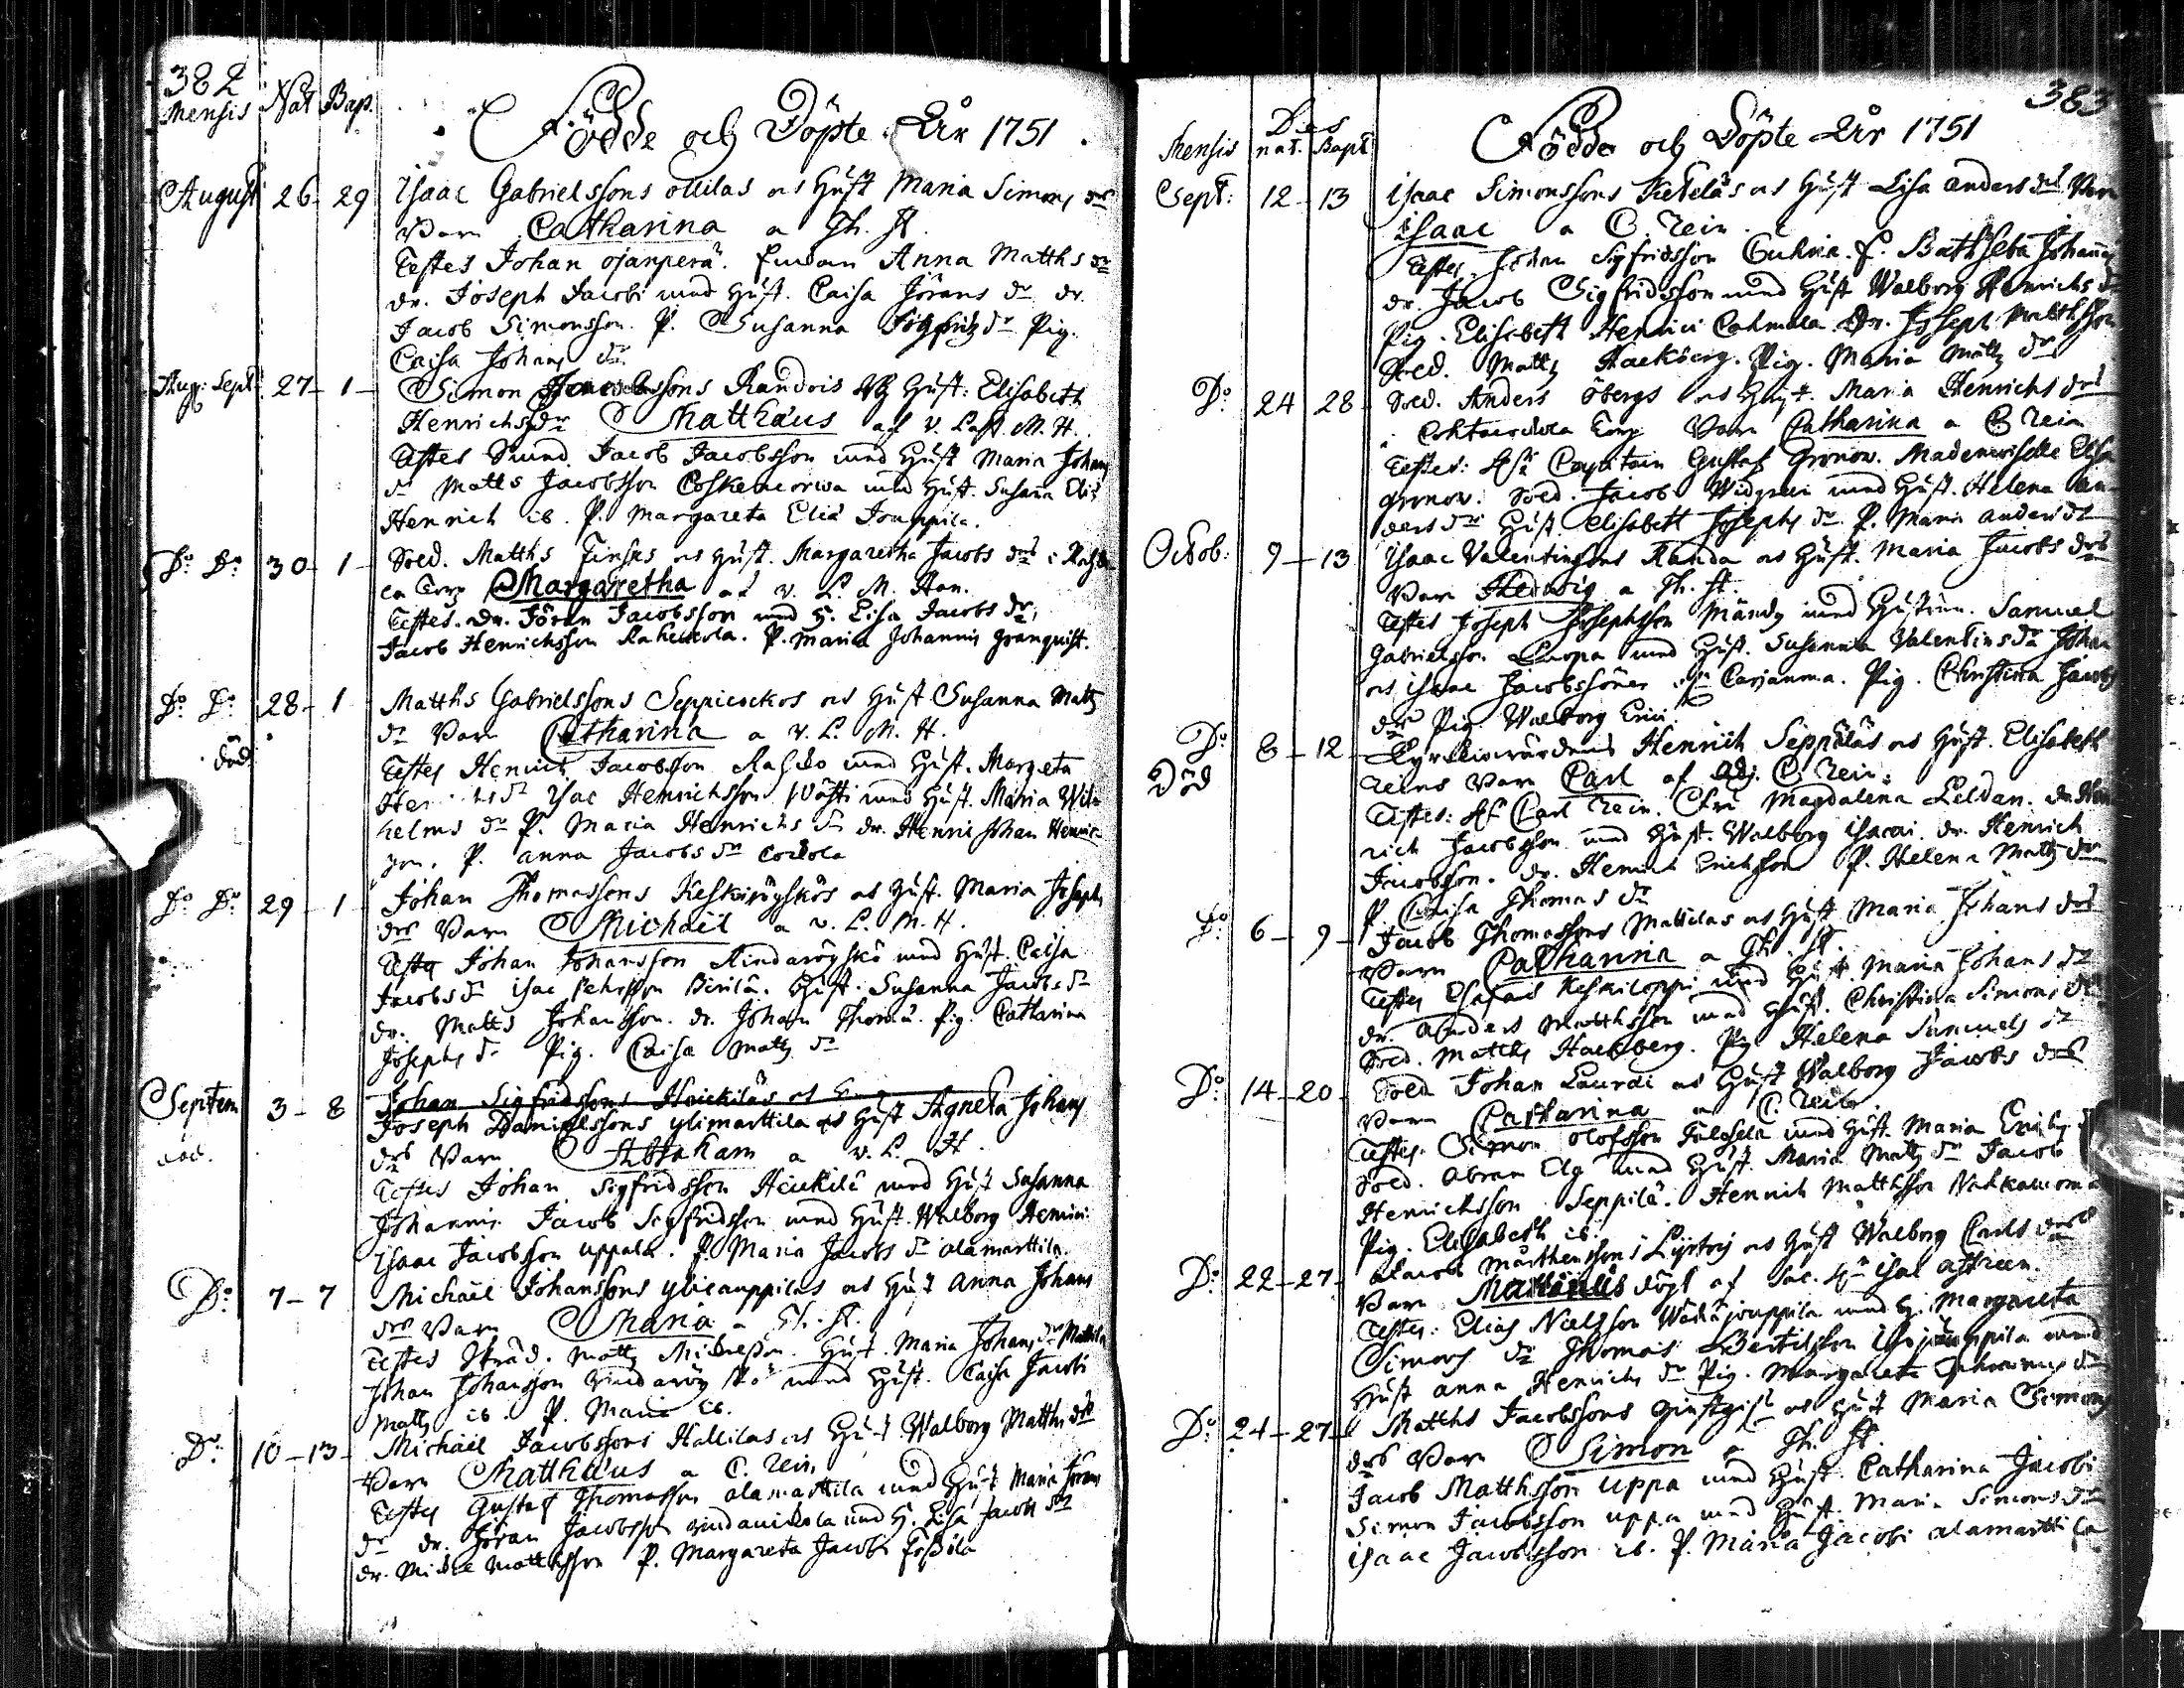 382
Mensis Nat Bap.
Födde och Döpte År 1751.
August 26-29 Isaac Gabrielssons Ollilas och Hust Maria Simons dr
Barn Catharina a Th. H.
Testes Johan Ojanperä. Enckan Anna Matths dr
dr. Joseph Jacobi med Hust. Caisa Jörans dr dr.
Jacob Simonsson. P. Susanna Sigfridz dr Pig.
Caisa Johans dr
Aug: Sept: 27-1- Simon Jacobssons Kandois och Hust: Elisabeth
Henrichs dr Matthæus af v. Past. M. H.
Testes Jacob Jacobsson med Hust Maria Johans
dr Matts Jacobsson med Hust. Susana Eliæ
Henrich ib. P. Margareta Eliæ Iouppila.
Do. Do. 30-1- Sold. Matths och Hust. Margaretha Jacobs drs i
Torp Margaretha af v. P. M. Han.
Testes. Dr. Jöran Jacobsson med H. Lisa Jacobs dr,
Jacob Henrichsson Rahckola. P. Maria Johannis Granquist.
Do. Do. 28-1 Matths Gabrielssons och Hust Susanna Matts
död
dr Barn Catharina a v. P. M. H.
Testes Henrich Jacobsson Rahcko med Hust. Margeta
dr Isac Henrichsson med Hust. Maria Wil
helms dr P. Maria Henrichs dr dr. Henric Johan Henric
son. P. Anna Jacobs dr
Do. Do. 29-1- Johan Thomassons Keskiröyskös och Hust. Maria Josephs
drs Barn Michaël a v. P. M. H.
Testes Johan Johansson Rindaröyskö med Hust. Caisa
Jacobs dr Isac Pehrsson Hust. Susanna Jacobs dr
dr. Matts Johansson. dr. Johan Thomæ. Pig. Catharina
Josephs dr Pig. Caisa Matts dr
Septem 3-8 Johan Sigfridssons Heickiläs och
död.
Joseph Danielssons Ylimarttila och Hust Agneta Johans
drs Barn Abraham a v. P. H.
Testes Johan Sigfridsson Heickilä med Hust Susanna
Johannis. Jacob Sigfridsson med Hust. Walborg Henrici.
Isaac Jacobsson Uppala. P. Maria Jacobs dr Alamarttila.
Do: 7-7 Michaël Johanssons Ylicauppilas och Hust Anna Johans
drs Barn Maria a Th. H.
Testes Skräd. Matts Mickelsson. Hust. Maria Johans dr Mattila
Johan Johansson Rindaröyskö med Hust. Caisa Jacobi
Matts ib. P. Maria ib.
Do: 10-13- Michaël Jacobssons Hallilas och Hust Walborg Matths drs
Barn Matthæus a C. Rein.
Testes Gustaf Thomasson Alamarttila med Hust Maria Jöran
dr dr. Jöran Jacobsson med H. Lisa Jacobs dr
dr. Mickel Matthsson P. Margareta Jacobi
383
Dies
Mensis nat. Bapt:
Födde och Döpte År 1751
Sept: 12-13 Isaac Simonssons Ketteläs och Hust Lisa Anders drs Barn
Isaac a C. Rein.
Testes. Johan Sigfridsson Cuhna. E. Bathseba Johannis
dr. Jacob Sigfridsson med Hust Walborg Henrichs dr
Pig. Elisabeth Henrici Cahmala Dr. Joseph Matthsson
Sold. Matts Hackberg. Pig. Maria Matts dr
Do: 24 28 Sold. Anders Öbergs och Hust. Maria Henrichs drs
i Torp Barn Catharina a C Rein
Testes: Hr Capitain Gustaf Gronow. Mademoiselle Elsa
Gronow. Sold. Jacob Widgren med Hust. Helena An
ders dr Hust Elisabeth Josephs dr. P. Maria Anders dr
Octob: 9-13 Isaac Valentinssons Randa och Hust. Maria Jacobs drs
Barn Hedwig a Th. H.
Testes Joseph Josephsson Mändy med Hustrun. Samuel
Gabrielsson Luopa med Hust. Susanna Valentins dr Johan
och Isaac Jacobssöner Carjanma. Pig. Christina Jacobs
dr Pig. Walborg Erici
Do. 8-12- Kyrkiowärdens Henrich Seppäläs och Hust. Elisabeth
Död
Reins Barn Carl af Adj. C. Rein.
Testes: Hr Carl Rein. Fru Magdalena Peldan. dr. Hen
rich Jacobsson med Hust. Walborg Isaaci. dr. Henrich
Jacobsson. Dr. Henrich Erichsson P. Helena Matts dr
P. Caisa Thomas dr
Do: 6-9- Jacob Thomassons Mattilas och Hust Maria Johans drs
Barn Catharina a Th H.
Testes Keskiloppi med Hust Maria Johans dr
dr. Anders Matthsson med Hust. Christina Simons dr
Sold. Matths Hackberg. Pig Helena Samuels dr
Do. 14-20 Sold Johan Laurdi och Hust Walborg Jacobs drs
Barn Catharina a C. Rein.
Testes. Simon Olofsson med Hust. Maria Erichs
Sold. Abram Elg med Hust. Maria Matts dr Jacob
Henrichsson Seppilä. Henrich Matthsson
Pig. Elisabeth ib.
Do. 22-27- Jacob Mårthenssons och Hust Walborg Carls drs
Barn Matthæus dögt af Sac. Hr Isac Astreen.
Testes: Elias Nielsson Wähäjouppila med H. Margareta
Simons dr Thomas Bertilsson med
Hust Anna Henrichs dr Pig. Margareta dr
Do: 24-27- Matths Jacobssons och Hust Maria Simons
drs Barn Simon a Th. H.
Jacob Matthsson Uppa med Hust. Catharina Jacobi
Simon Jacobsson Uppa med Hust. Maria Simons dr
Isaac Jacobsson ib. P. Maria Jacobi Alamarttila